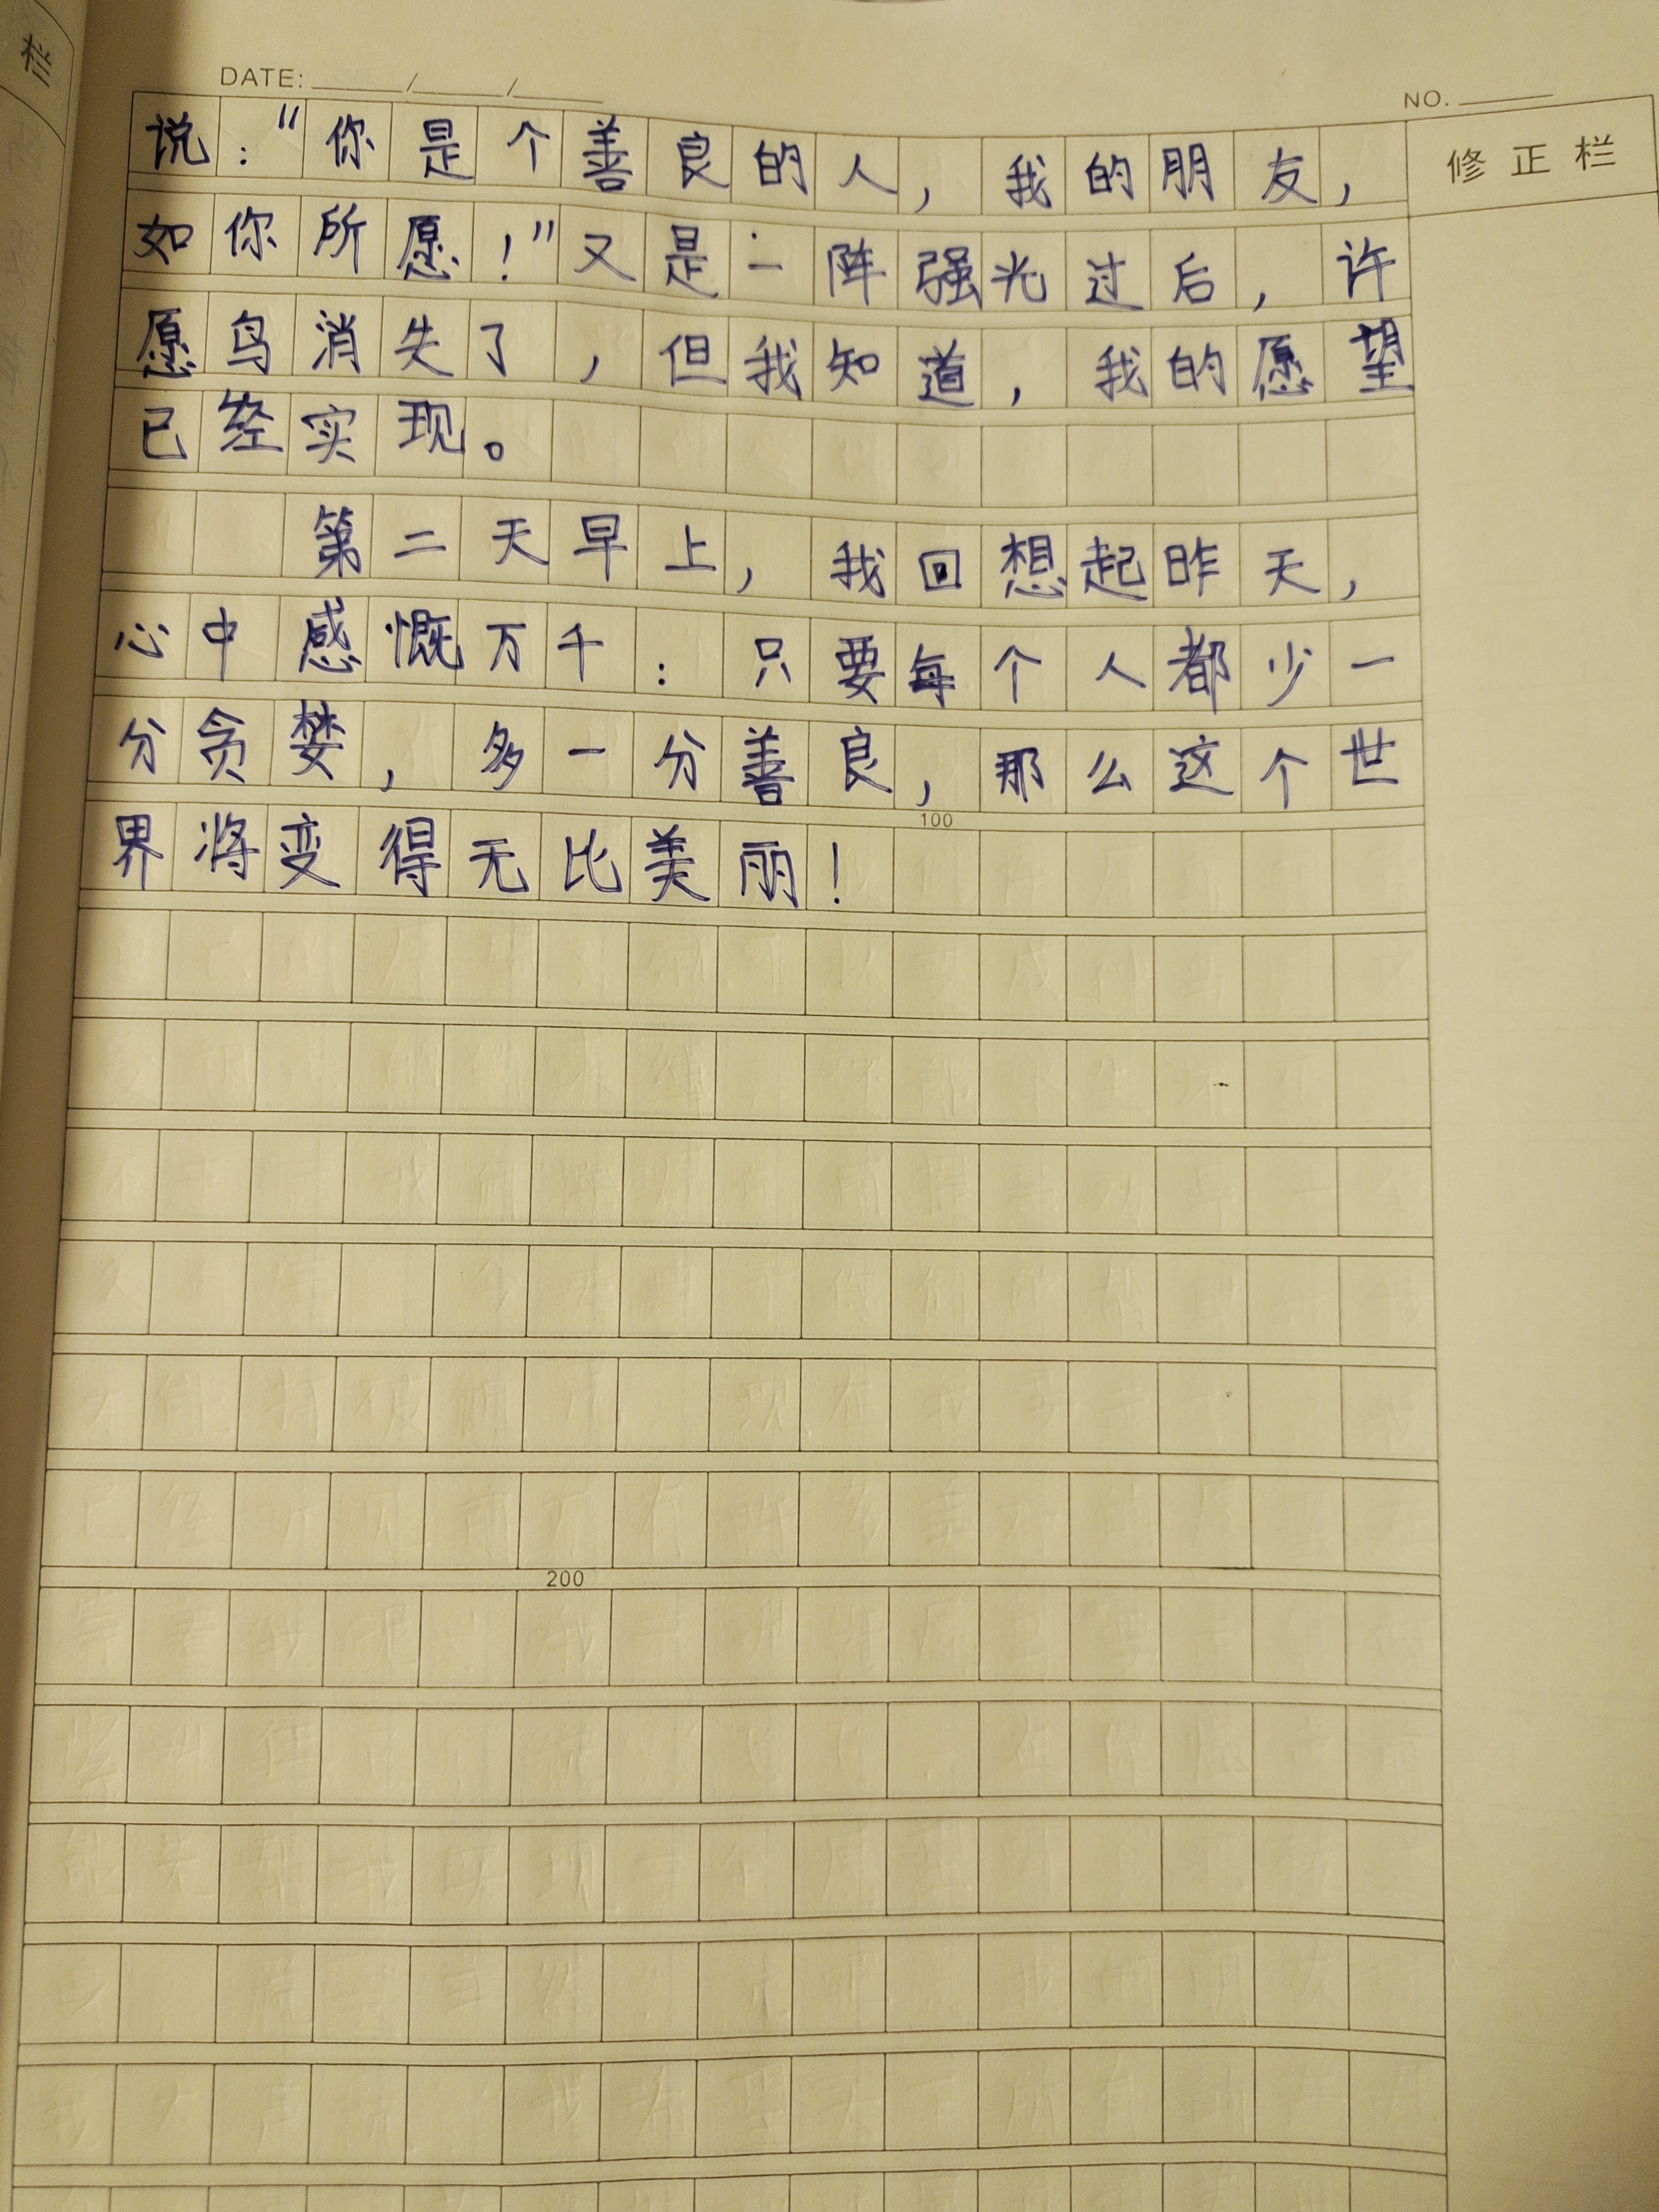 栏
DATE: ____/____/____
NO. ____
修正栏
说："你是个善良的人，我的朋友，
如你所愿！"又是一阵强光过后，许
愿鸟消失了，但我知道，我的愿望
已经实现。
第二天早上，我回想起昨天，
心中感慨万千：只要每个人都少一
分贪婪，多一分善良，那么这个世
100
界将变得无比美丽！
200